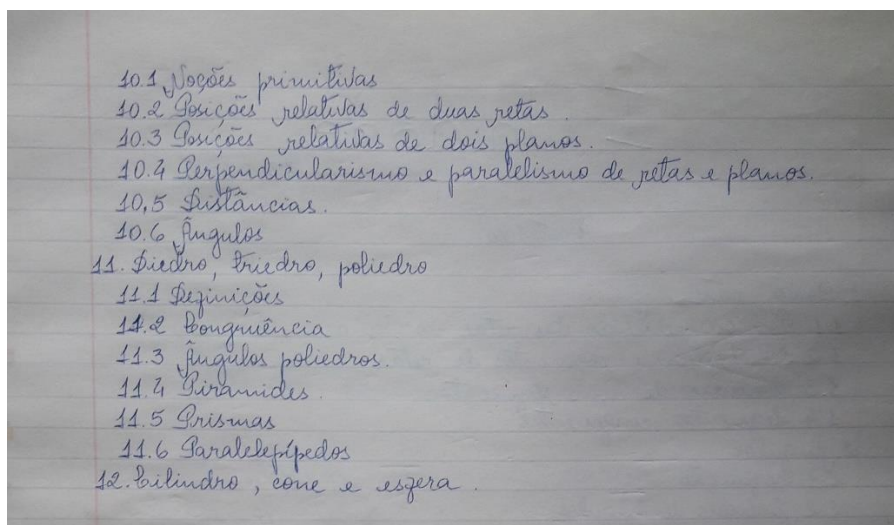 10.1 Noções primitivas
10.2 Posições relativas de duas retas.
10.3 Posições relativas de dois planos.
10.4 Perpendicularismo e paralelismo de retas e planos.
10,5 Distâncias.
10.6 Ângulos
11. Diedro, triedro, poliedro
11.1 Definições
11.2 Congruência
11.3 Ângulos poliedros.
11.4 Pirâmides.
11.5 Prismas
11.6 Paralelepípedos
12. Cilindro, cone e esfera.